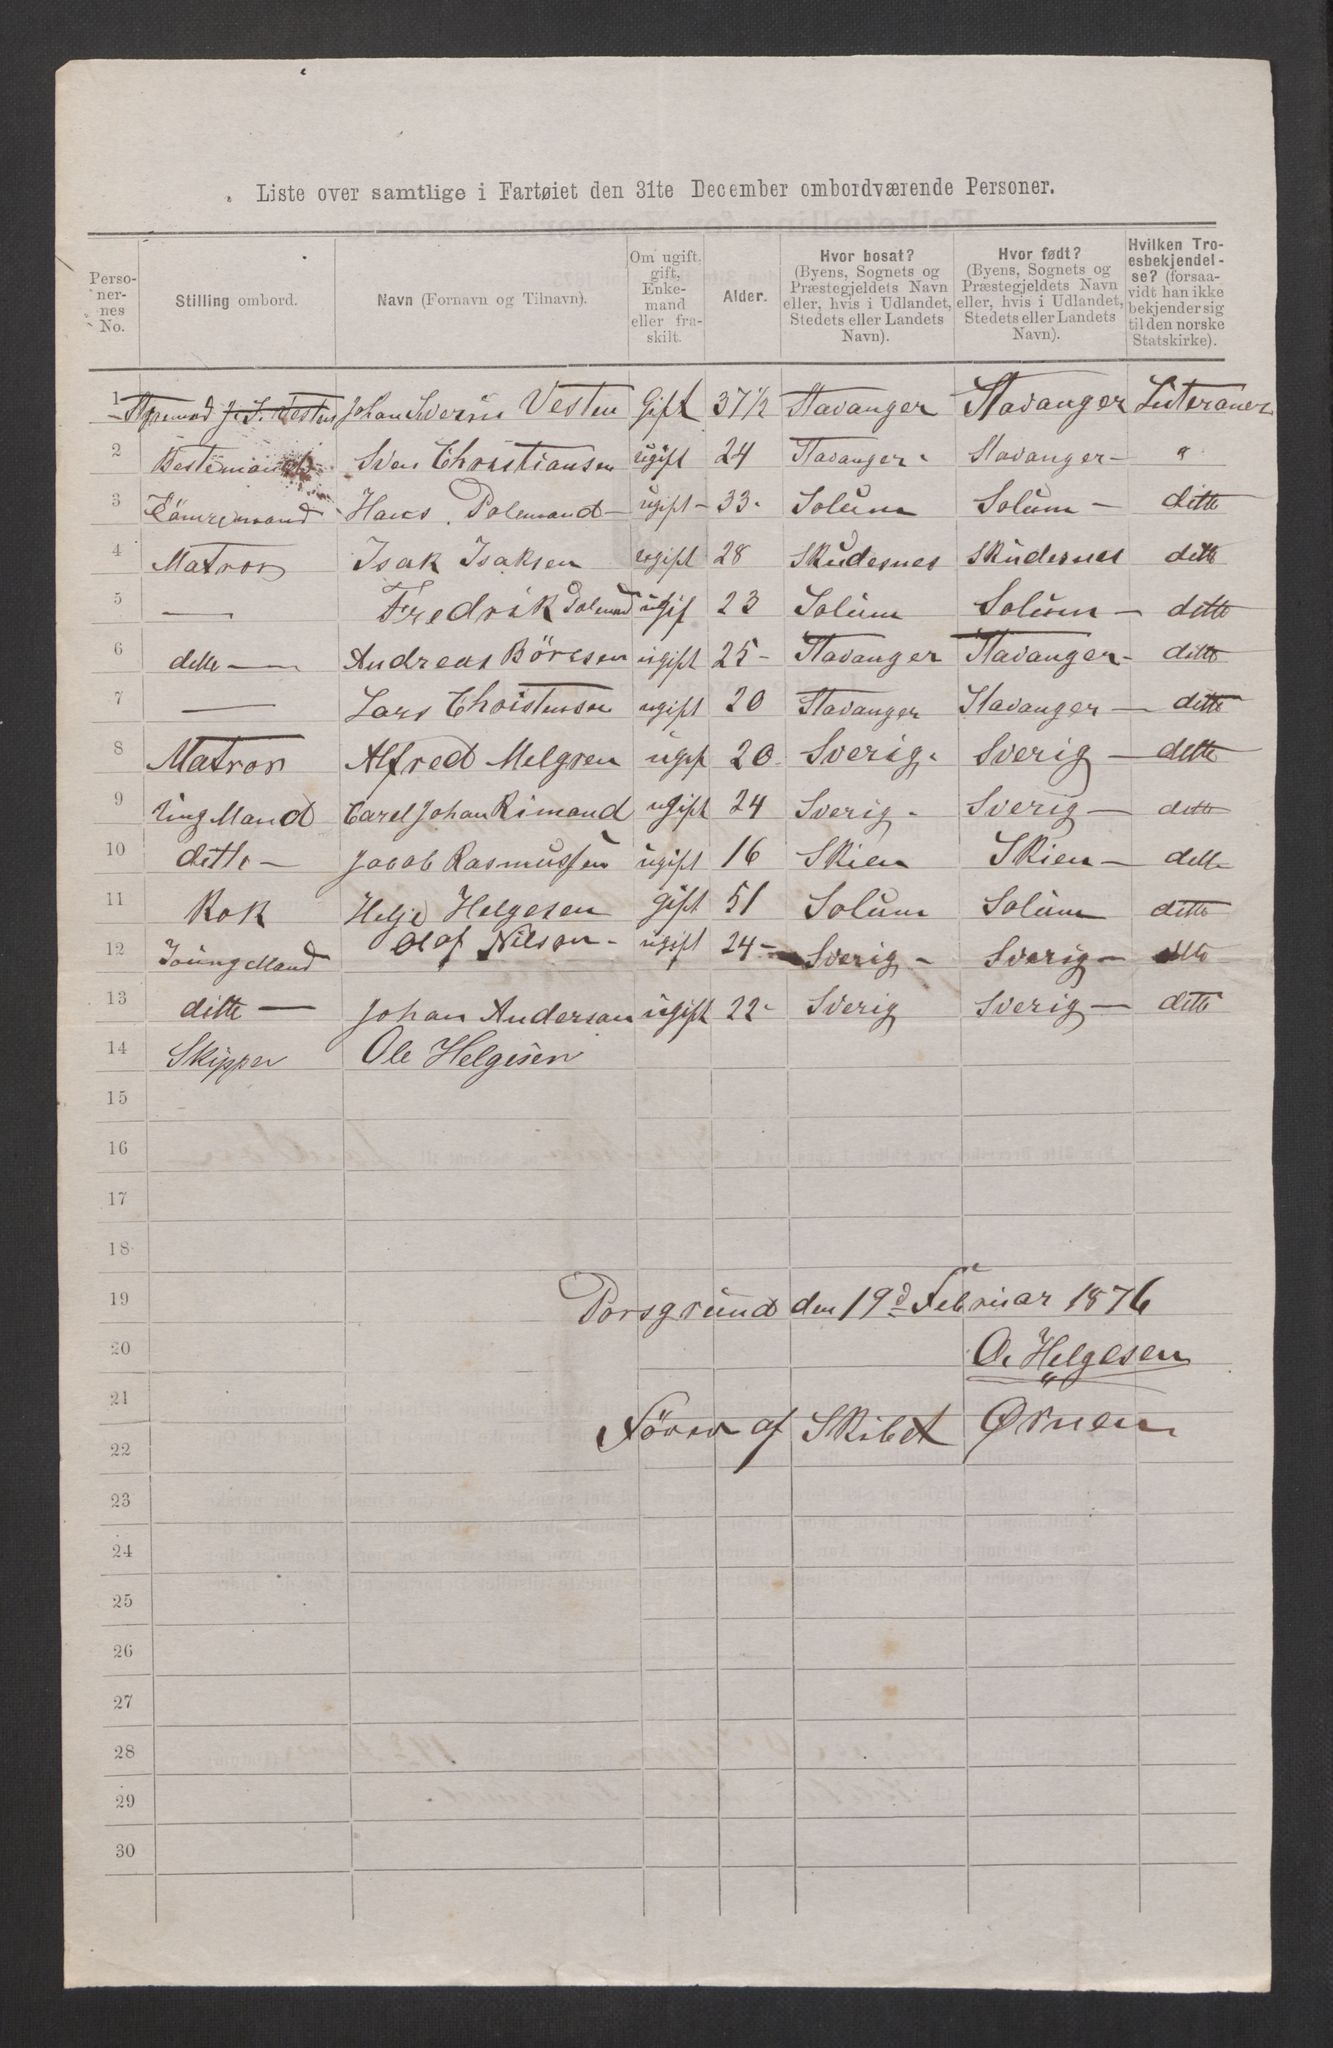 Liste over samtlige i Fartøiet den 31te December ombordværende Personer.
Personernes No. | Stilling ombord. | Navn (Fornavn og Tilnavn). | Om ugift, gift, Enkemand eller fraskilt. | Alder. | Hvor bosat? (Byens, Sognets og Præstegjeldets Navn eller, hvis i Udlandet, Stedets eller Landets Navn). | Hvor født? (Byens, Sognets og Præstegjeldets Navn eller, hvis i Udlandet, Stedets eller Landets Navn). | Hvilken Troesbekjendelse? (forsaavidt han ikke bekjender sig til den norske Statskirke).
1 Styremand J. S. Vesten Johan Sverin Vesten Gift 37 1/2 Stavanger Stavanger Luteraner
2 Bestemand Sven Christiansen ugift 24 Stavanger - Stavanger - "
3 Tömremand Hans Polemand - ugift - 33 - Solum Solum - ditto
4 Matros Isak Isaksen ugift 28 Skudesnes Skudesnes ditto
5 — Fredrik Polemand ugif 23 Solum Solum - ditto
6 ditto — Andreas Böresen ugift 25 - Stavanger Stavanger - ditto
7 — Lars Christensen ugift 20 Stavanger Stavanger - ditto
8 Matros Alfred Melgren ugift 20 Sverig - Sverig - ditto
9 ung Mand Carel Johan Rimand ugift 24 Sverig - Sverig - ditto
10 ditto - Jacob Rasmussen ugift 16 Skien Skien - ditto
11 Kok Helje Helgesen gift 51 Solum Solum ditto
12 Joung Mand Olaf Nilson - ugift 24 - Sverig - Sverig - ditto
13 ditto — Johan Anderson ugift 22 - Sverig Sverig - ditto
14 Skipper Ole Helgesen
15
16
17
18
19 Porsgrund den 19d Februar 1876
20 O. Helgesen
21
22 Förer af Skibet Ørnen
23
24
25
26
27
28
29
30